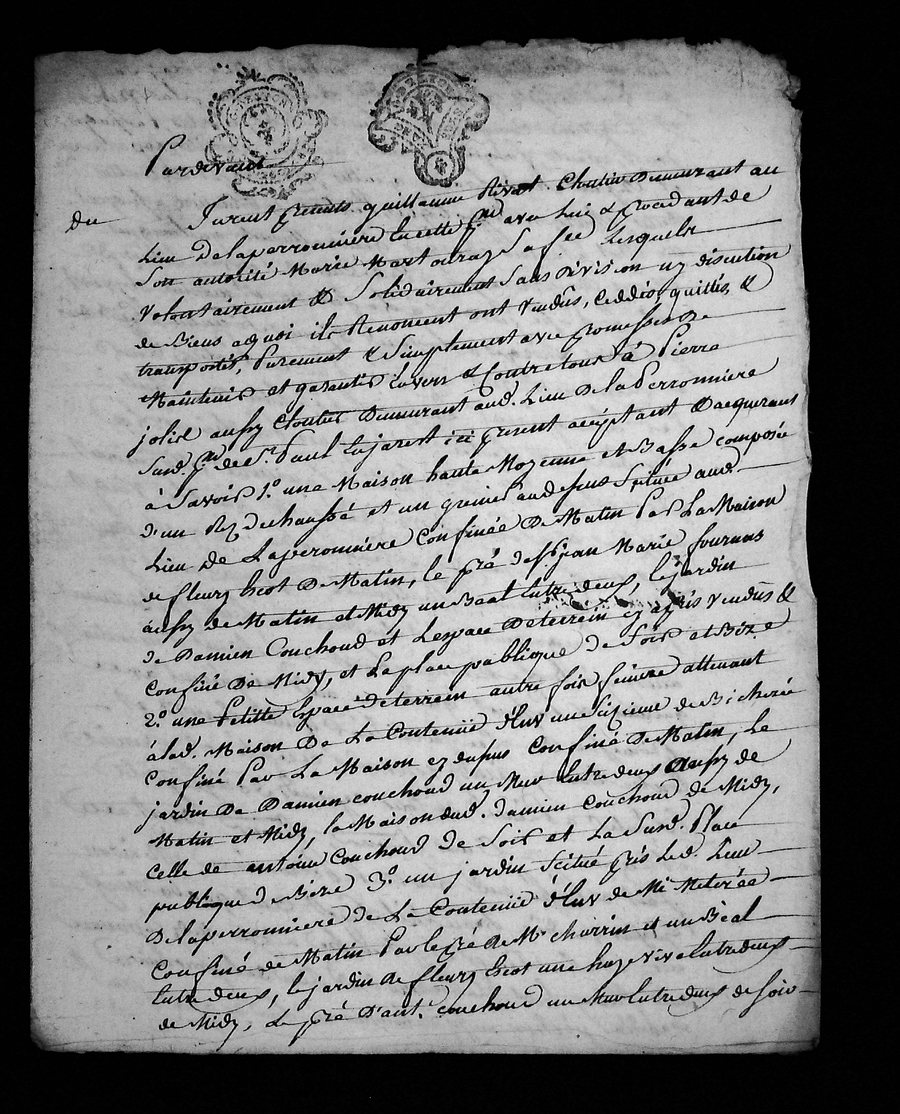 Pardevant
du
furent presents guillaume Rivat Cloutier Demeurant au
Lieu De laperronniere en cette psse avec Lui & procedant de
Son autorité Marie Mart ouray Sa fee Lesquels
volontairement & Solidairement Sans division ny discution
de Biens a quoi ils Renoncent ont vendus, ceddés, quittés, &
transportés, Purement & Simplement avec promesse de
Maintenir et garantir Envers & Contre tous à Pierre
jolid aussy Cloutier Demeurant aud. Lieu De la Perronniere
Susd. psse de St. Paul En jarest ici present acceptant & acquerant
à Savoir 1.° une Maison haute Moyenne et Basse composée
d'un Rez dechaussé et un grenier audessus Scituée aud.
Lieu de Laperonniere Confinée De Matin Par La Maison
de fleury Escot De Matin, le pré de Sr jean Marie fournas
aussy de Matin et Midy un Beal Entredeux, le jardin
de Damien Couchoud et L'espace De terrein cy après vendus &
confiné De Midy, et La place publique de Soir et Bize
2.° une Petitte Espace de terrein autre fois Cimire attenant
à lad. Maison De La Contenue d'Env une Sizieme de Bicherée
Confiné Par La Maison cy dessus Confiné De Matin, Le
jardin De Damien couchoud un Mur Entredeux Aussy de
Matin et Midy, la Maison dud. Damien Couchoud de Midy,
Celle de antoine Couchoud de Soir et La Susd. Place
publique de Bize 3.° un jardin Scitué près Led. Lieu
De laperronniere De La Contenue d'Env de Mi Meterée
Confiné de Matin Par le pré de Mr charrin et un Béal
Entredeux, le jardin de fleury Escot une haye vive Entredeux
de Midy, Le pré D'ant. couchoud un Mur Entredeux de Soir